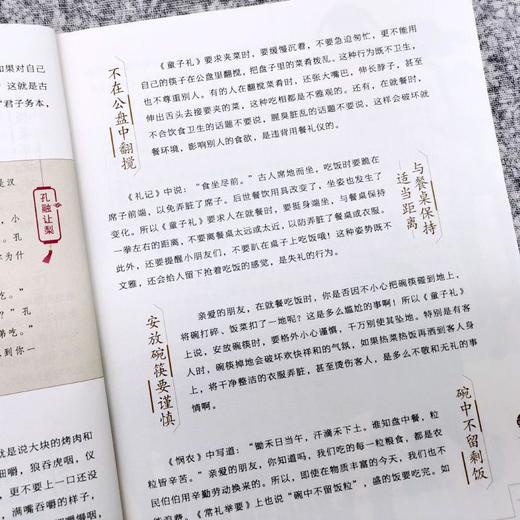 果对自己
这就是古
“君子务本，
是汉
小
孔
为什
孔融让梨
吃。”
？”孔
弟吃。”
到你一
就是说大块的烤肉和
细嚼，狼吞虎咽，仪
不要上一口还没
满嘴吞嚼的样子，
细嚼慢咽，
不在公盘中翻搅
《童子礼》要求夹菜时，要缓慢沉着，不要急迫匆忙，更不能用
自己的筷子在公盘里翻搅，把盘子里的菜肴拨乱。这种行为既不卫生，
也不尊重别人。有的人在翻搅菜肴时，还张大嘴巴，伸长脖子，甚至
伸出舌头去接要夹的菜，这种吃相都是不雅观的。还有，在就餐时，
不合饮食卫生的话题不要说，腥臭脏乱的话题不要说，这样会破坏就
餐环境，影响别人的食欲，是违背用餐礼仪的。
与餐桌保持
适当距离
《礼记》中说：“食坐尽前。”古人席地而坐，吃饭时要跪在
席子前端，以免弄脏了席子。后世餐饮用具改变了，坐姿也发生了
变化。所以《童子礼》要求人在就餐时，要挺身端坐，与餐桌保持
一拳左右的距离，不要离餐桌太远或太近，以防弄脏了餐桌或衣服。
此外，还要提醒小朋友们，不要趴在桌子上吃饭哦！这种姿势既不
文雅，还会给人留下抢着吃饭的感觉，是失礼的行为。
安放碗筷要谨慎
亲爱的朋友，在就餐吃饭时，你是否因不小心把碗筷碰到地上，
将碗打碎，饭菜扣了一地呢？这是多么尴尬的事啊！所以《童子礼》
上说，安放碗筷时，要格外小心谨慎，千万别使其坠地。特别是有客
人时，碗筷掉地会破坏欢快祥和的气氛，如果热菜热饭再洒到客人身
上，将干净整洁的衣服弄脏，甚至烫伤客人，是多么不敬和无礼的事
情啊。
碗中不留剩饭
《悯农》中写道：“锄禾日当午，汗滴禾下土。谁知盘中餐，粒
粒皆辛苦。”亲爱的朋友，你知道吗，我们吃的每一粒粮食，都是农
民伯伯用辛勤劳动换来的。所以，即使在物质丰富的今天，我们也不
能浪费。《常礼举要》上也说“碗中不留饭粒”，盛的饭要吃完。如